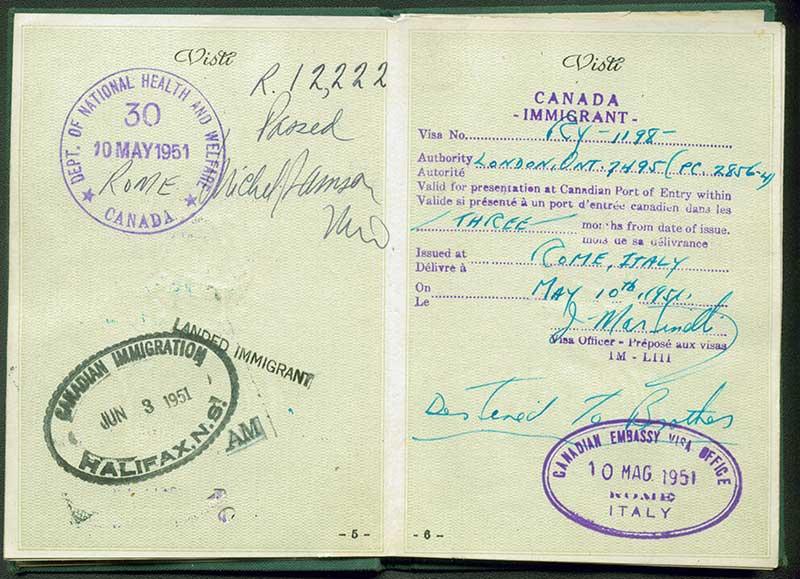 Visti
R. 12,222
DEPT. OF NATIONAL HEALTH AND WELFARE
30
10 MAY 1951
ROME
CANADA
Passed
Michel
M.D.
LANDED IMMIGRANT
CANADIAN IMMIGRATION
JUN 3 1951
HALIFAX, N.S.
AM
- 5 -
Visti
CANADA
- IMMIGRANT -
Visa No. RY-1198-
Authority LONDON, ONT. 7495 (PC 2856-4)
Autorité
Valid for presentation at Canadian Port of Entry within
Valide si présenté à un port d'entrée canadien dans les
THREE months from date of issue.
mois de sa délivrance
Issued at ROME, ITALY
Délivré à
On MAY 10th, 1951.
Le
Visa Officer - Préposé aux visas
IM - LIII
Destined To Brother
CANADIAN EMBASSY VISA OFFICE
10 MAG. 1951
ROME
ITALY
- 6 -